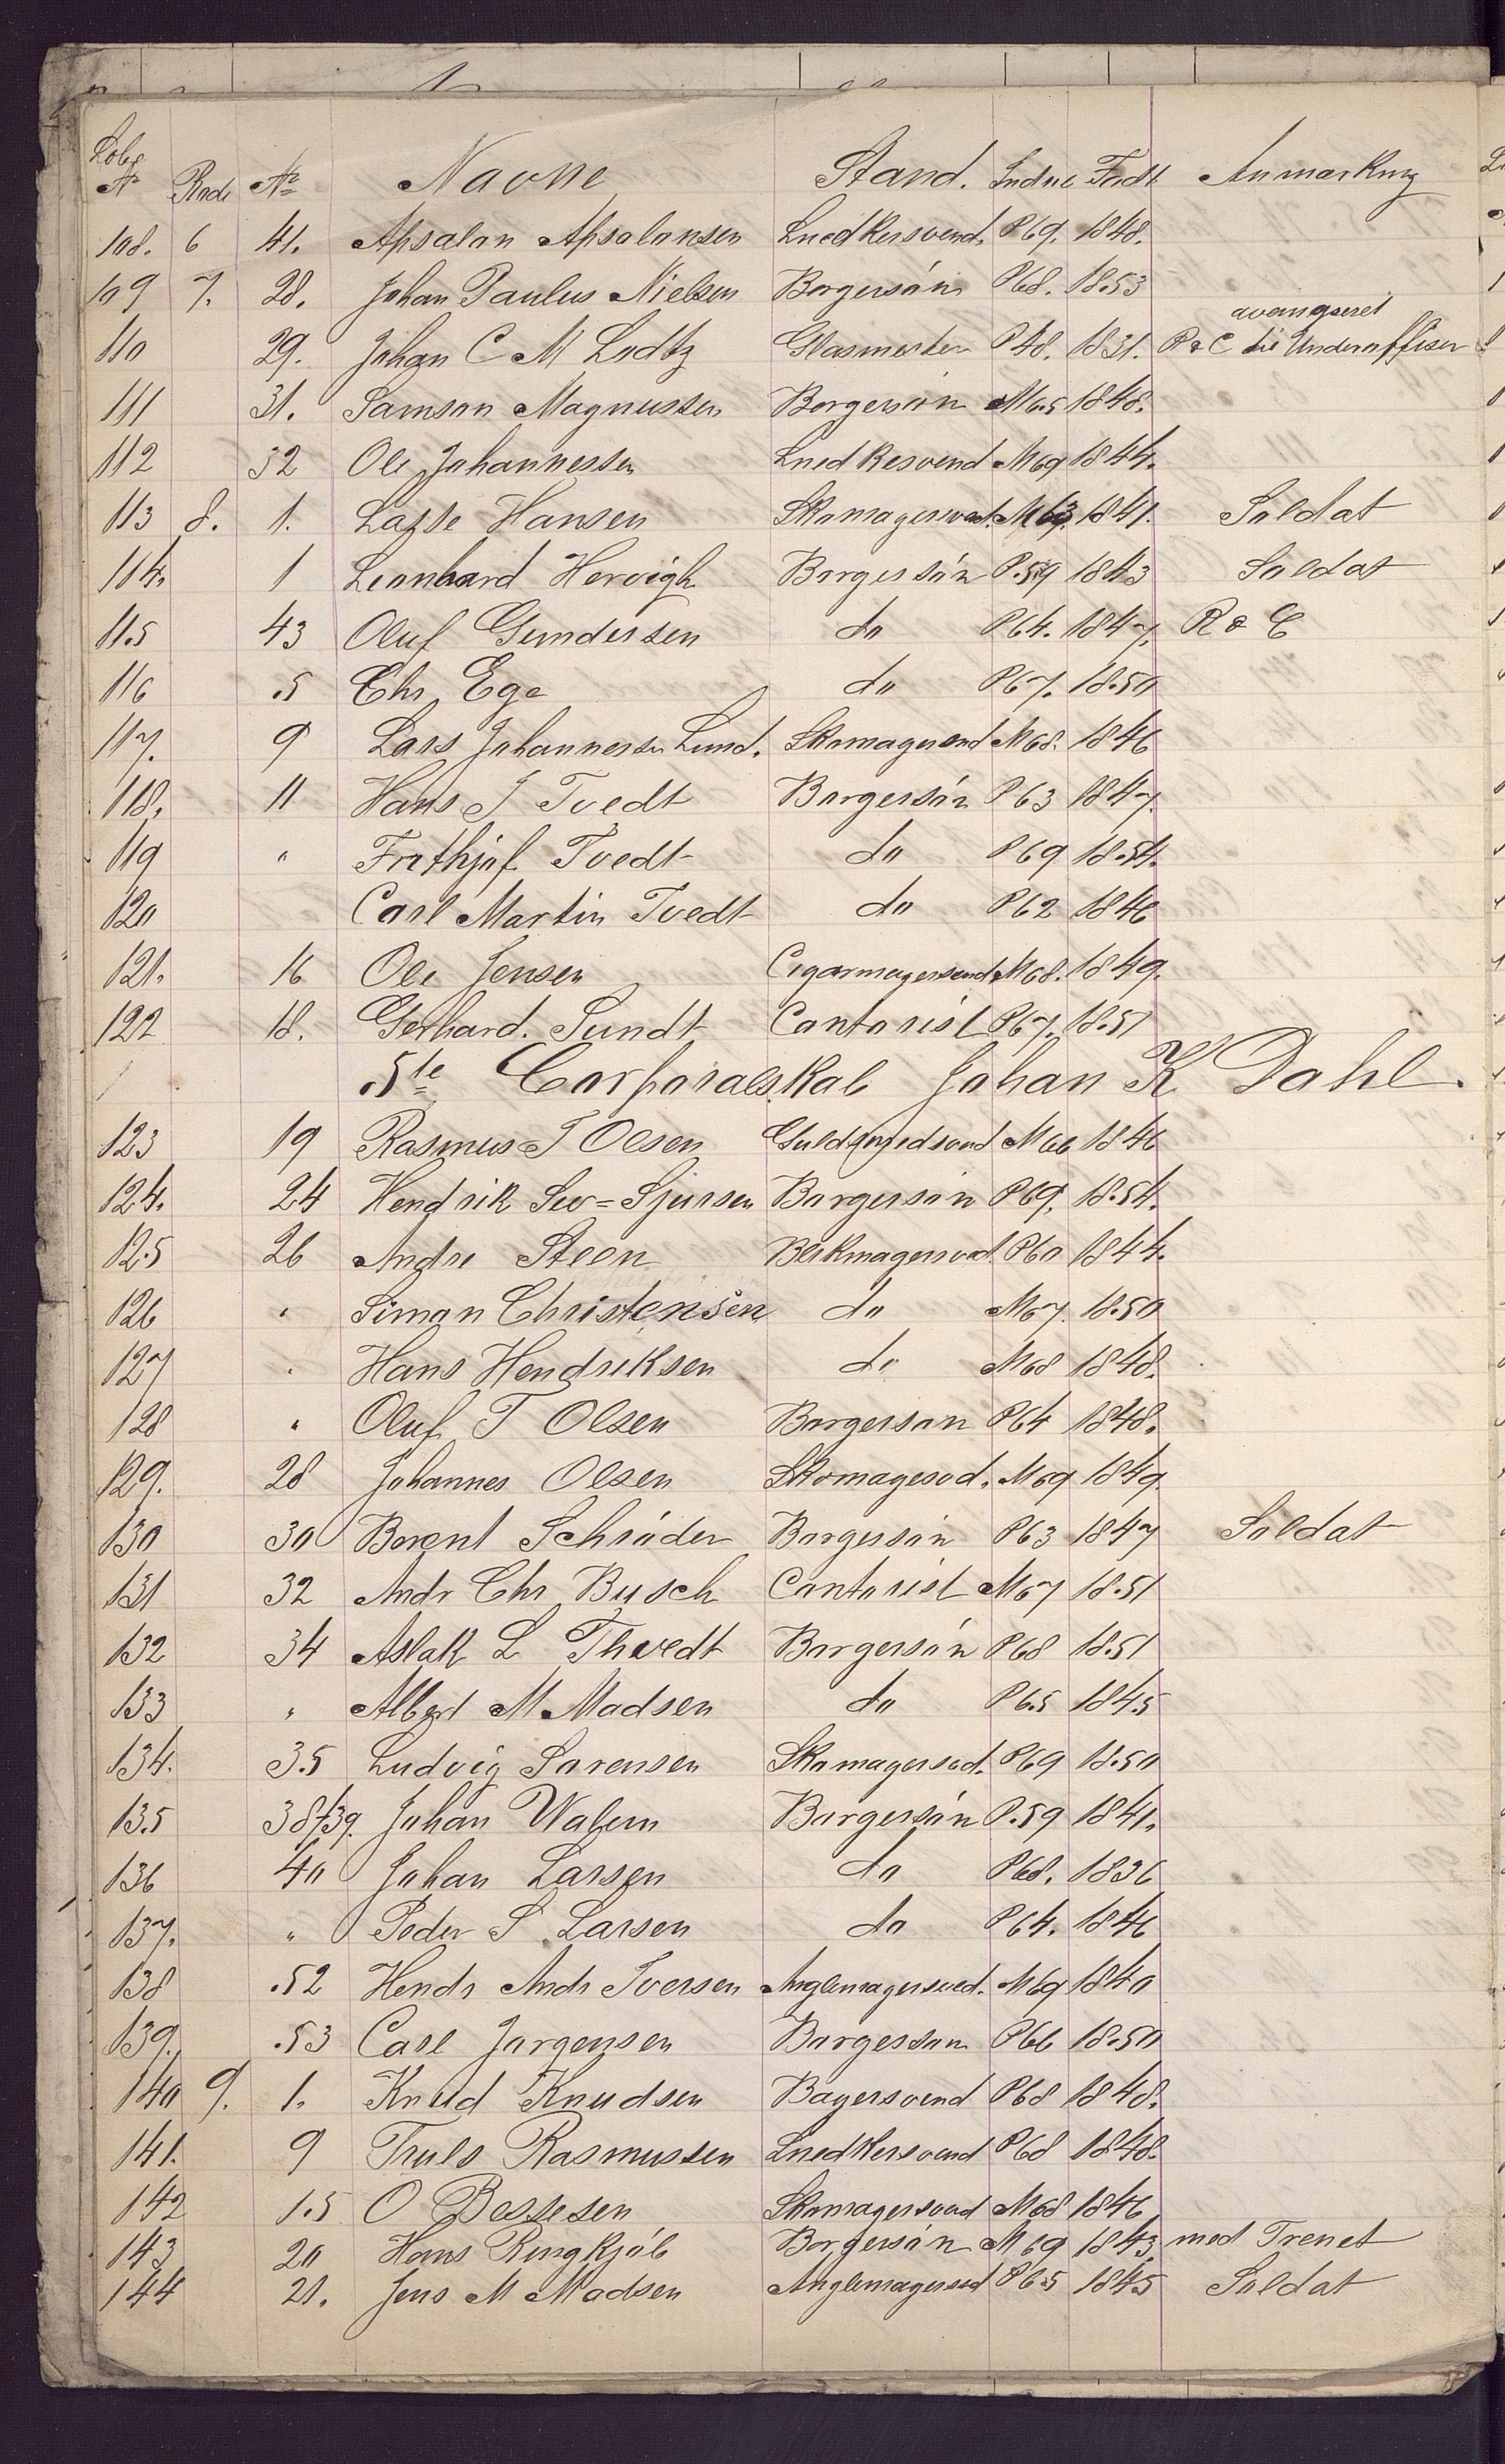 Lobe
No Rode No Navne Stand. Indne Födt Anmærkning
108. 6 41. Apsalon Apsalonsen Snedkersvend. P69. 1848.
109 7. 28. Johan Paulus Nielsen Borgersön P68. 1853
avangseret
110 29. Johan C M Lodtz Glasmester P48. 1831. R & C til Underoffiser
111 31. Samson Magnussen Borgersön M65 1848.
112 32 Ole Johannessen Snedkesvend M69 1844.
113 8. 1. Lasse Hansen Skomagersvend. M63. 1841. Soldat
114. 1 Leonhard Hervigh Borgersön P.59 1843 Soldat
115 43 Oluf Gundersen do P64. 1847. R & C
116 5 Chr Ege do P67. 1850
117. 9 Lars Johannessen Lund. Skomagersvend M68. 1846
118. 11 Hans J Tvedt Borgersön P63 1847.
119 " Frithjof Tvedt do P69 1854.
120 Carl Martin Tvedt do P62 1846
121. 16 Ole Jensen Cigarmagersvend M68. 1849.
122 18. Gerhard. Sundt Contorist P67. 1851
5te Corporalskab Johan K Dahl.
123 19 Rasmus T Olsen Guldsmedsvend M66 1846
124. 24 Hendrik Sev=Sjursen Borgersön P69. 1854.
125 26 Andre Steen Blikmagersvend. P60 1844.
126 " Simon Christensen do M67. 1850
127 " Hans Hendriksen do M68 1848.
128 " Oluf T Olsen Borgerson P64 1848.
129. 28 Johannes Olsen Skomagesvd. M69 1849.
130 30 Berent Schröder Borgersön P63 1847 Soldat
131 32 Andr Chr Busch Contorist M67 1851
132 34 Aslak L Thvedt Borgersön P68 1851
133 " Albert M Madsen do P65 1845
134. 35 Ludvig Sorensen Skomagersvd. P69 1850
135 38/39. Johan Walem Borgersön P.59 1841.
136 40 Johan Larsen do P68. 1836
137. " Peder S Larsen do P64. 1846
138 52 Hendr Andr Iversen Anglemagersved. M69 1840
139. 53 Carl Jorgensen Borgersson P66 1850
140 9. 1. Knud Knudsen Bagersvend P68 1848.
141. 9 Truls Rasmussen Snedkersvend P68 1848.
142 15 O Bessesen Skomagersvend M68 1846
143 20 Hans Ringkjöb Borgersön M69 1843. med Trenet
144 21. Jens M Madsen Anglemagersvd P65 1845 Soldat